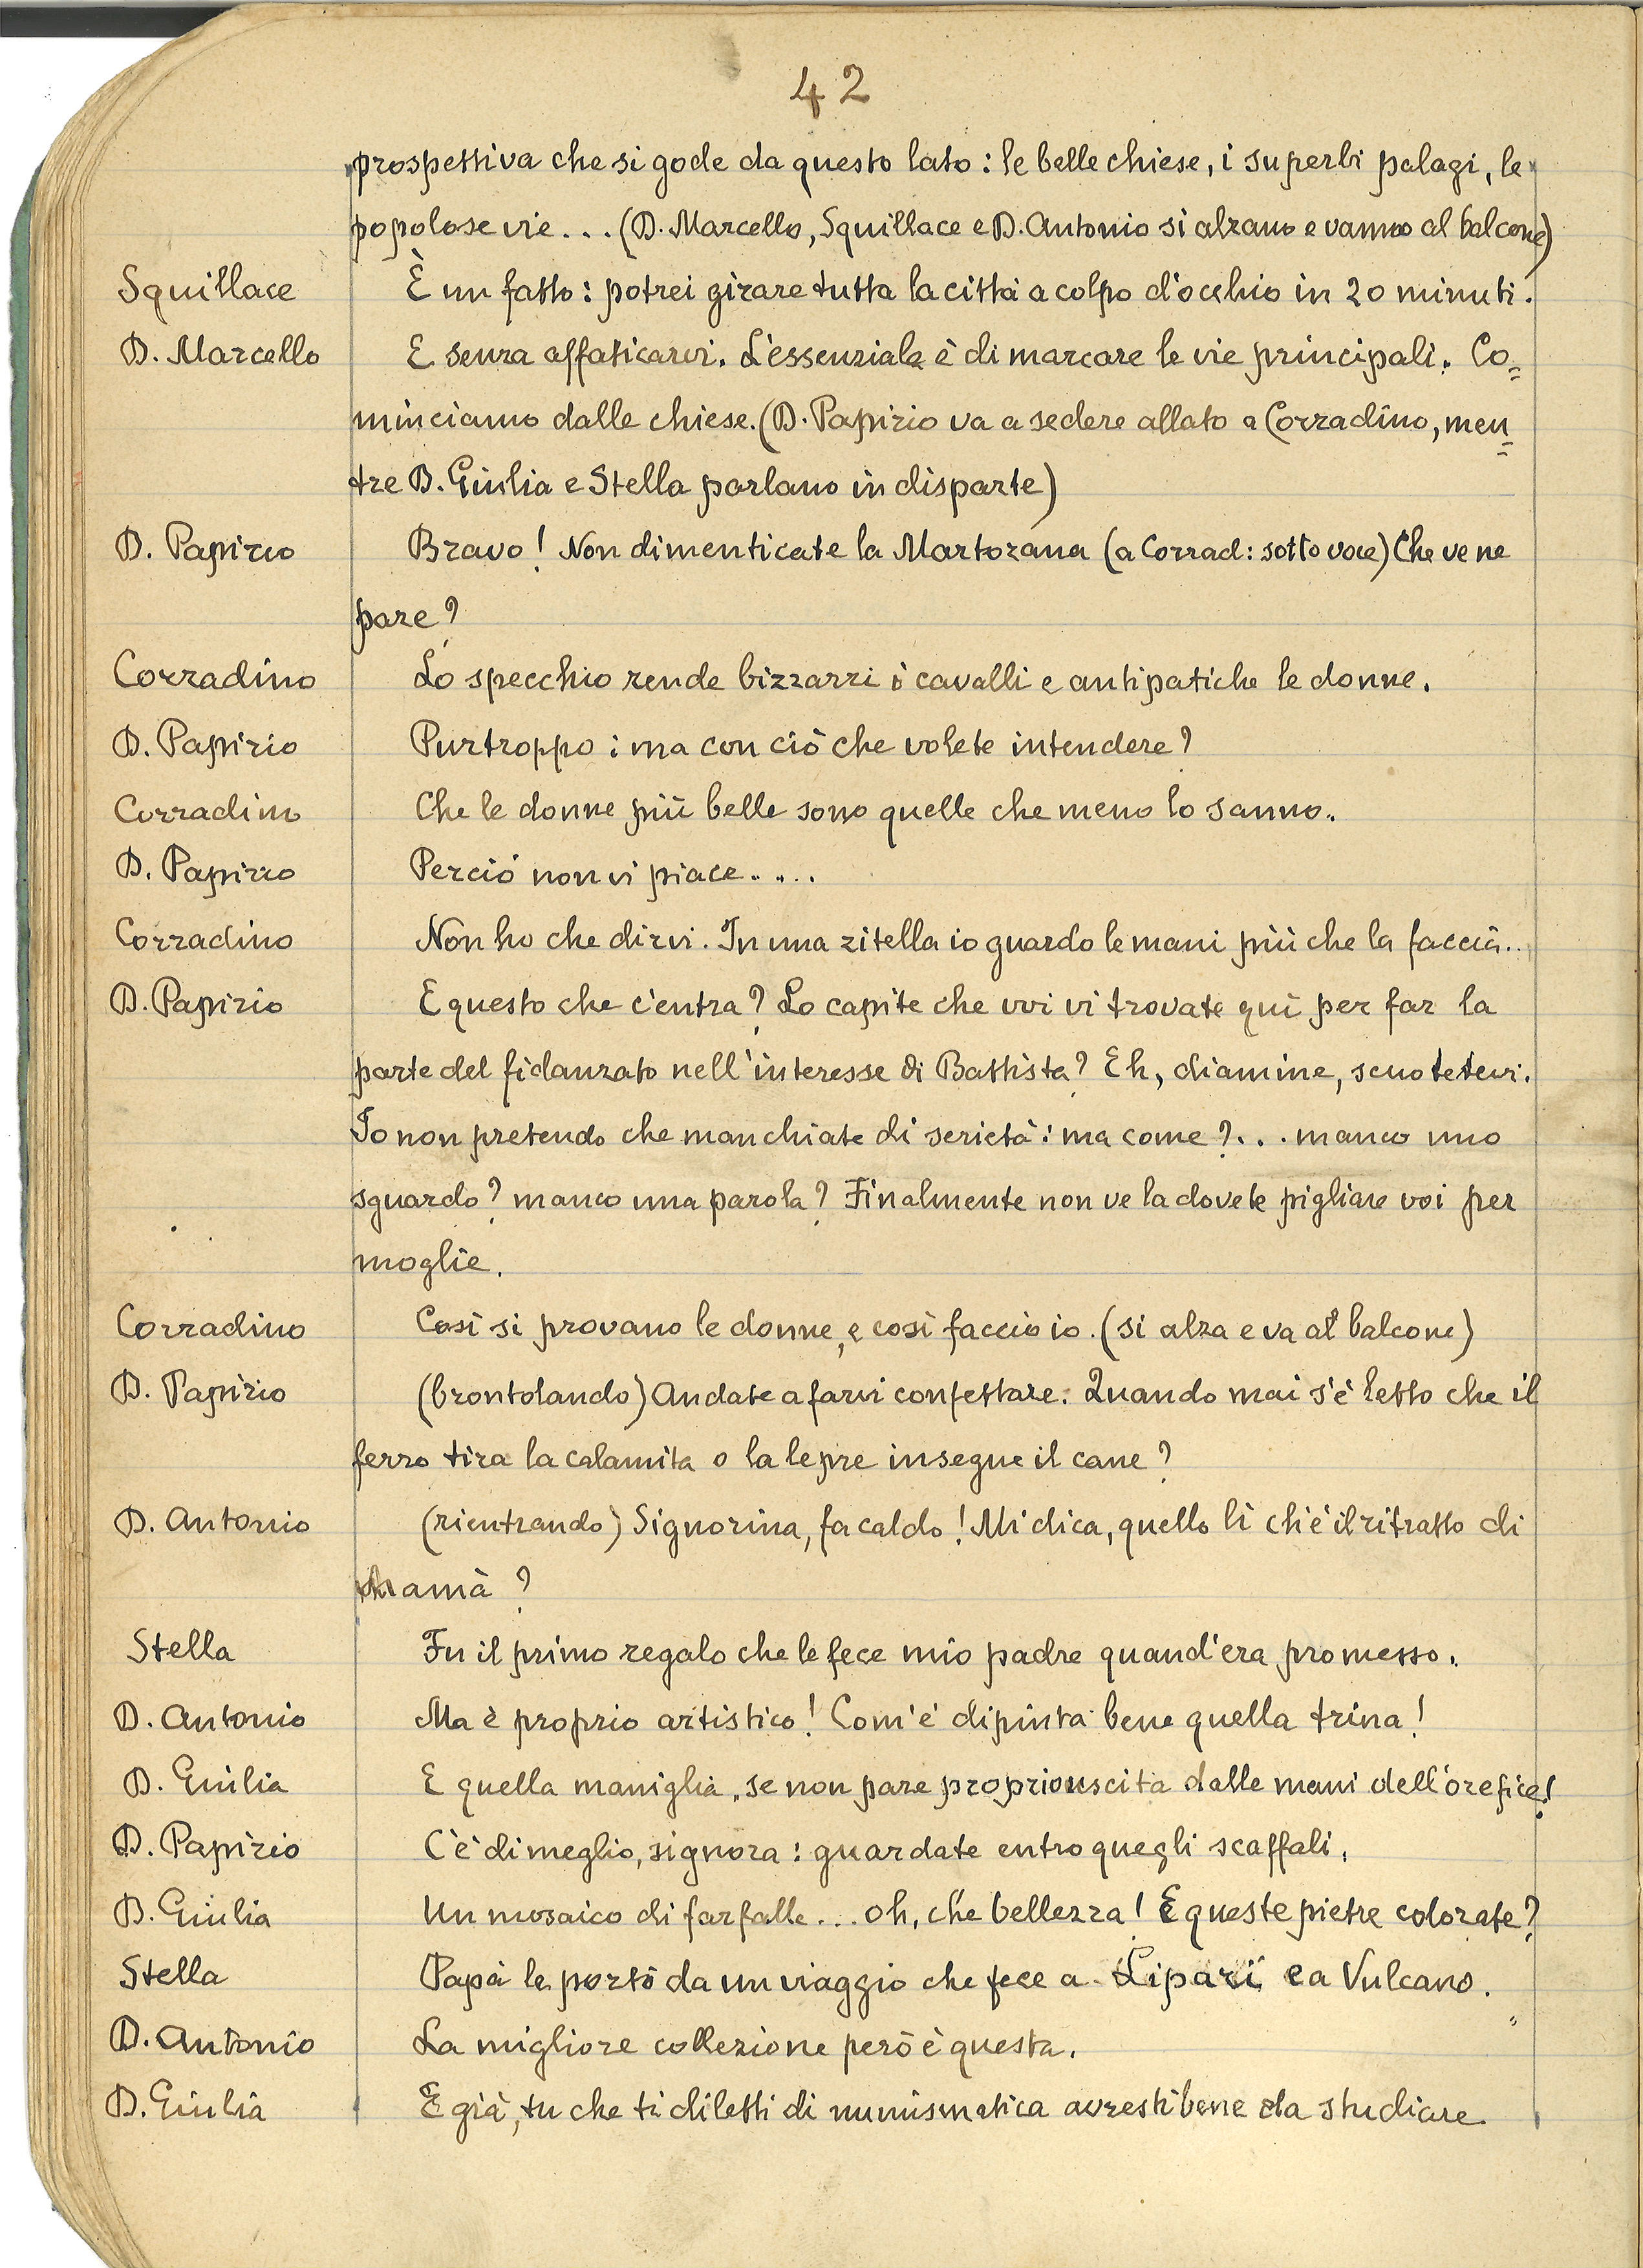 42
prospettiva che si gode da questo lato: le belle chiese, i superbi palagi, le
popolose vie... (D. Marcello, Squillace e D. Antonio si alzano e vanno al balcone)
Squillace È un fatto: potrei girare tutta la città a colpo d'occhio in 20 minuti.
D. Marcello E senza affaticarvi. L'essenziale è di marcare le vie principali. Co=
minciamo dalle chiese. (D. Papirio va a sedere allato a Corradino, men=
tre D. Giulia e Stella parlano in disparte)
D. Papirio Bravo! Non dimenticate la Martorana (a Corrad: sotto voce) Che ve ne
pare?
Corradino Lo specchio rende bizzarri i cavalli e antipatiche le donne.
D. Papirio Purtroppo: ma con ciò che volete intendere?
Corradino Che le donne più belle sono quelle che meno lo sanno.
D. Papirio Perciò non vi piace.....
Corradino Non ho che dirvi. In una zitella io guardo le mani più che la faccia..
D. Papirio E questo che c'entra? Lo capite che voi vi trovate qui per far la
parte del fidanzato nell'interesse di Battista? Eh, diamine, scuotetevi.
Io non pretendo che manchiate di serietà: ma come?... manco uno
sguardo? manco una parola? Finalmente non ve la dovete pigliare voi per
moglie.
Corradino Così si provano le donne, e così faccio io. (si alza e va al balcone)
D. Papirio (brontolando) Andate a farvi confettare. Quando mai s'è letto che il
ferro tira la calamita o la lepre insegue il cane?
D. Antonio (rientrando) Signorina, fa caldo! Mi dica, quello lì ch'è il ritratto di
mamà?
Stella Fu il primo regalo che le fece mio padre quand'era promesso.
D. Antonio Ma è proprio artistico! Com'è dipinta bene quella trina!
D. Giulia E quella maniglia, se non pare proprio uscita dalle mani dell'orefice!
D. Papirio C'è di meglio, signora: guardate entro quegli scaffali.
D. Giulia Un mosaico di farfalle... oh, che bellezza! E queste pietre colorate?
Stella Papà le portò da un viaggio che fece a Lipari e a Vulcano.
D. Antonio La migliore collezione però è questa.
D. Giulia E già, tu che ti diletti di numismatica avresti bene da studiare